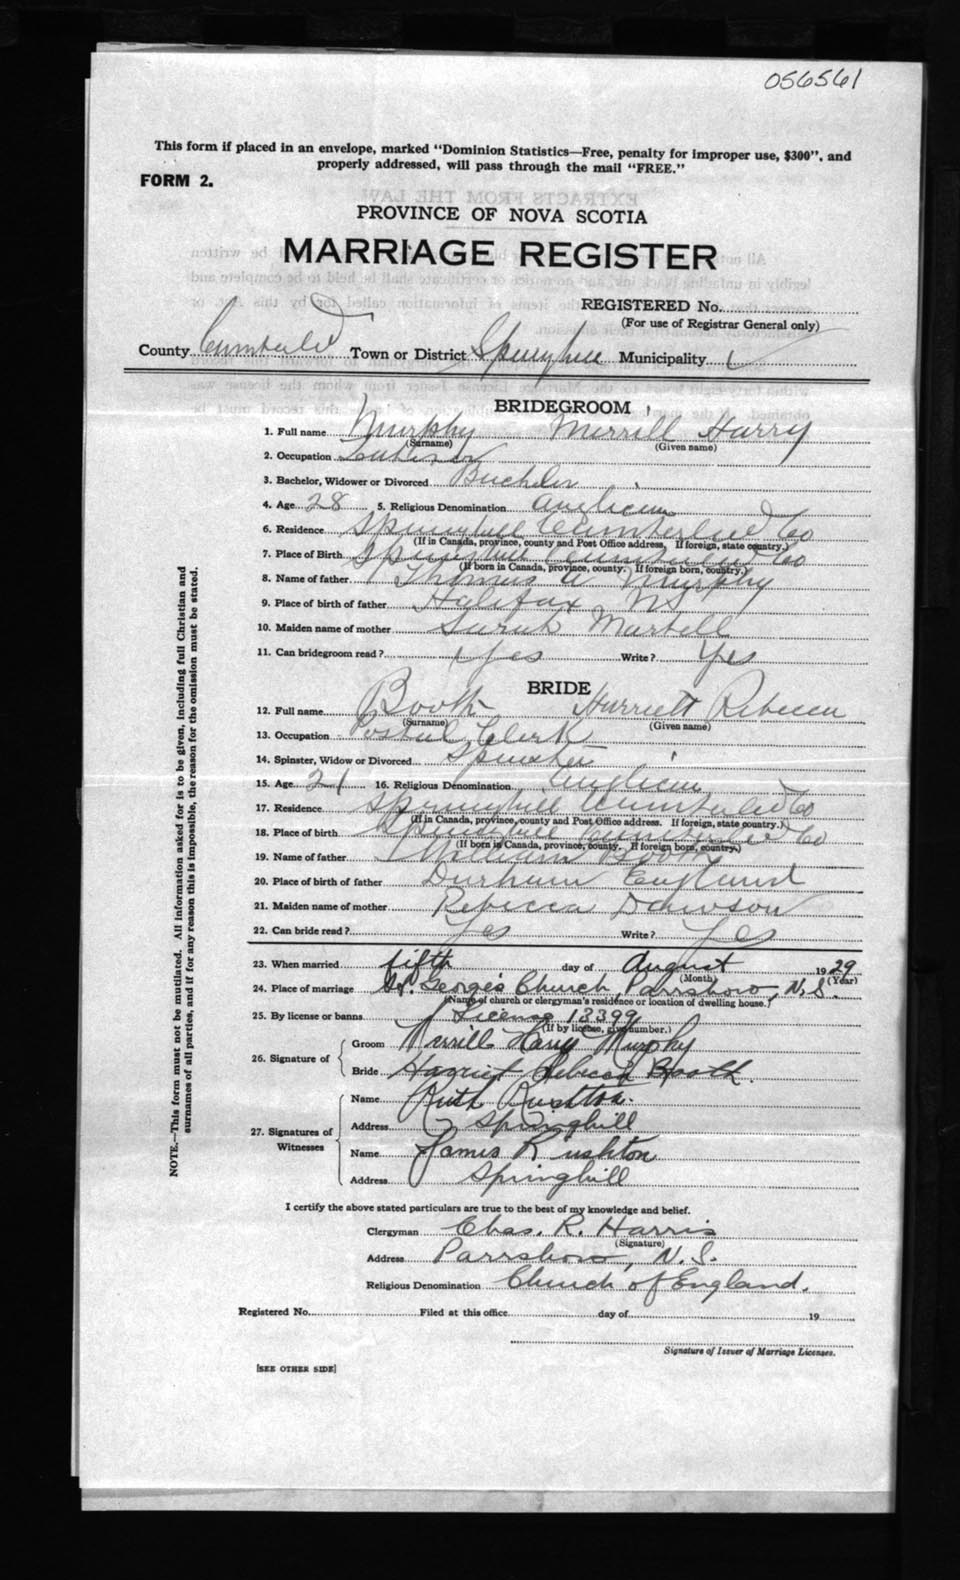 056561
This form if placed in an envelope, marked "Dominion Statistics—Free, penalty for improper use, $300", and
properly addressed, will pass through the mail "FREE."
FORM 2.
PROVINCE OF NOVA SCOTIA
MARRIAGE REGISTER
REGISTERED No.
(For use of Registrar General only)
County Cumberland Town or District Springhill Municipality
BRIDEGROOM
1. Full name Murphy Merrill Harry
(Surname) (Given name)
2. Occupation
3. Bachelor, Widower or Divorced Bachelor
4. Age 28 5. Religious Denomination Anglican
6. Residence Springhill Cumberland Co
(If in Canada, province, county and Post Office address. If foreign, state country.)
7. Place of Birth Springhill Cumberland Co
(If born in Canada, province, county. If foreign born, country.)
8. Name of father Thomas A Murphy
9. Place of birth of father Halifax NS
10. Maiden name of mother Sarah Martell
11. Can bridegroom read? Yes Write? Yes
BRIDE
12. Full name Booth Harriett Rebecca
(Surname) (Given name)
13. Occupation Postal Clerk
14. Spinster, Widow or Divorced Spinster
15. Age 21 16. Religious Denomination Anglican
17. Residence Springhill Cumberland Co
(If in Canada, province, county and Post Office address. If foreign, state country.)
18. Place of birth Springhill Cumberland Co
(If born in Canada, province, county. If foreign born, country.)
19. Name of father William Booth
20. Place of birth of father Durham England
21. Maiden name of mother Rebecca Dawson
22. Can bride read? Yes Write? Yes
23. When married fifth day of August 1929
(Month) (Year)
24. Place of marriage St. George's Church, Parrsboro, N.S.
(Name of church or clergyman's residence or location of dwelling house.)
25. By license or banns License 13399
(If by license, give number.)
26. Signature of Groom Merrill Harry Murphy
Bride Harriet Rebecca Booth.
27. Signatures of Witnesses Name Ruth Rushton.
Address Springhill
Name James Rushton
Address Springhill
I certify the above stated particulars are true to the best of my knowledge and belief.
Clergyman Chas. R. Harris
(Signature)
Address Parrsboro, N.S.
Religious Denomination Church of England.
Registered No. Filed at this office day of 19
Signature of Issuer of Marriage Licenses.
[SEE OTHER SIDE]
NOTE.—This form must not be mutilated. All information asked for is to be given, including full Christian and
surnames of all parties, and if for any reason this is impossible, the reason for the omission must be stated.